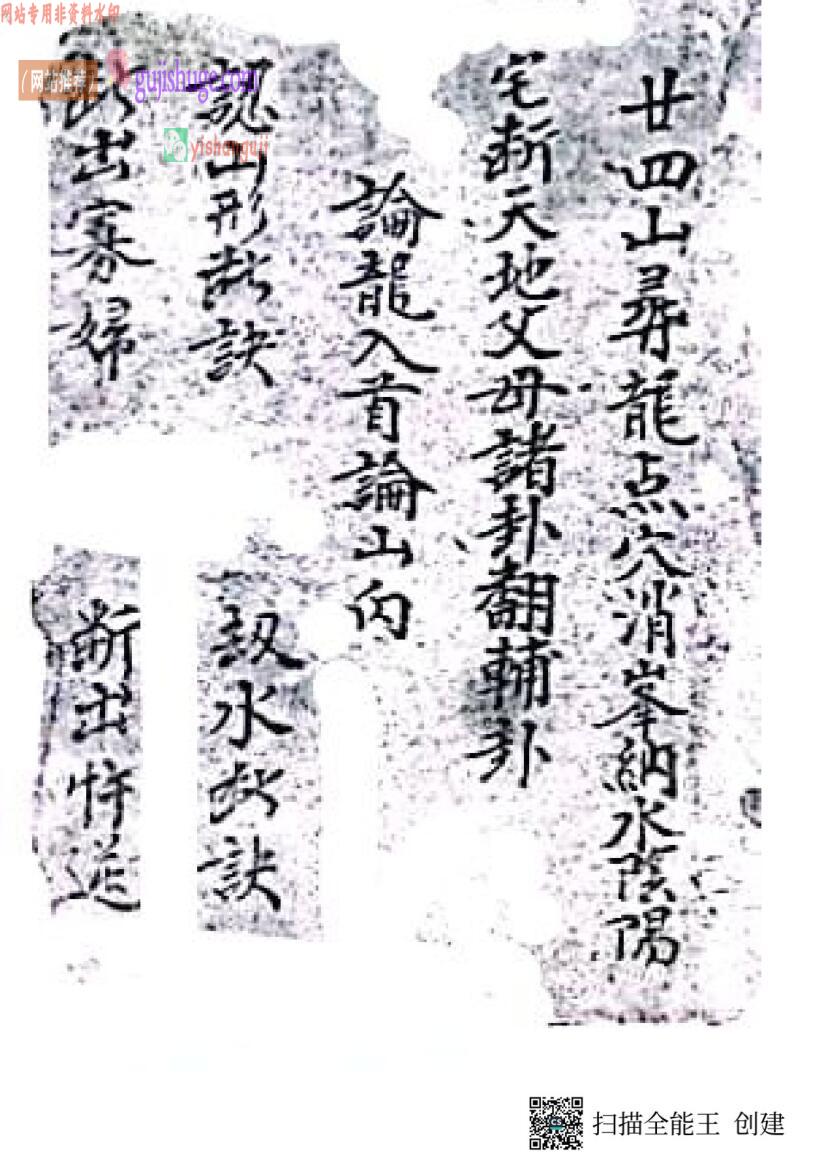 网站专用非资料水印
(网站推荐)
gujishuge.com
yishanguji
廿四山尋龍点穴消峯納水陰陽
宅斷天地父毋諸卦翻輔卦
論龍入首論山内
認山形訣
認水訣
出寡婦
断出忤逆
扫描全能王 创建